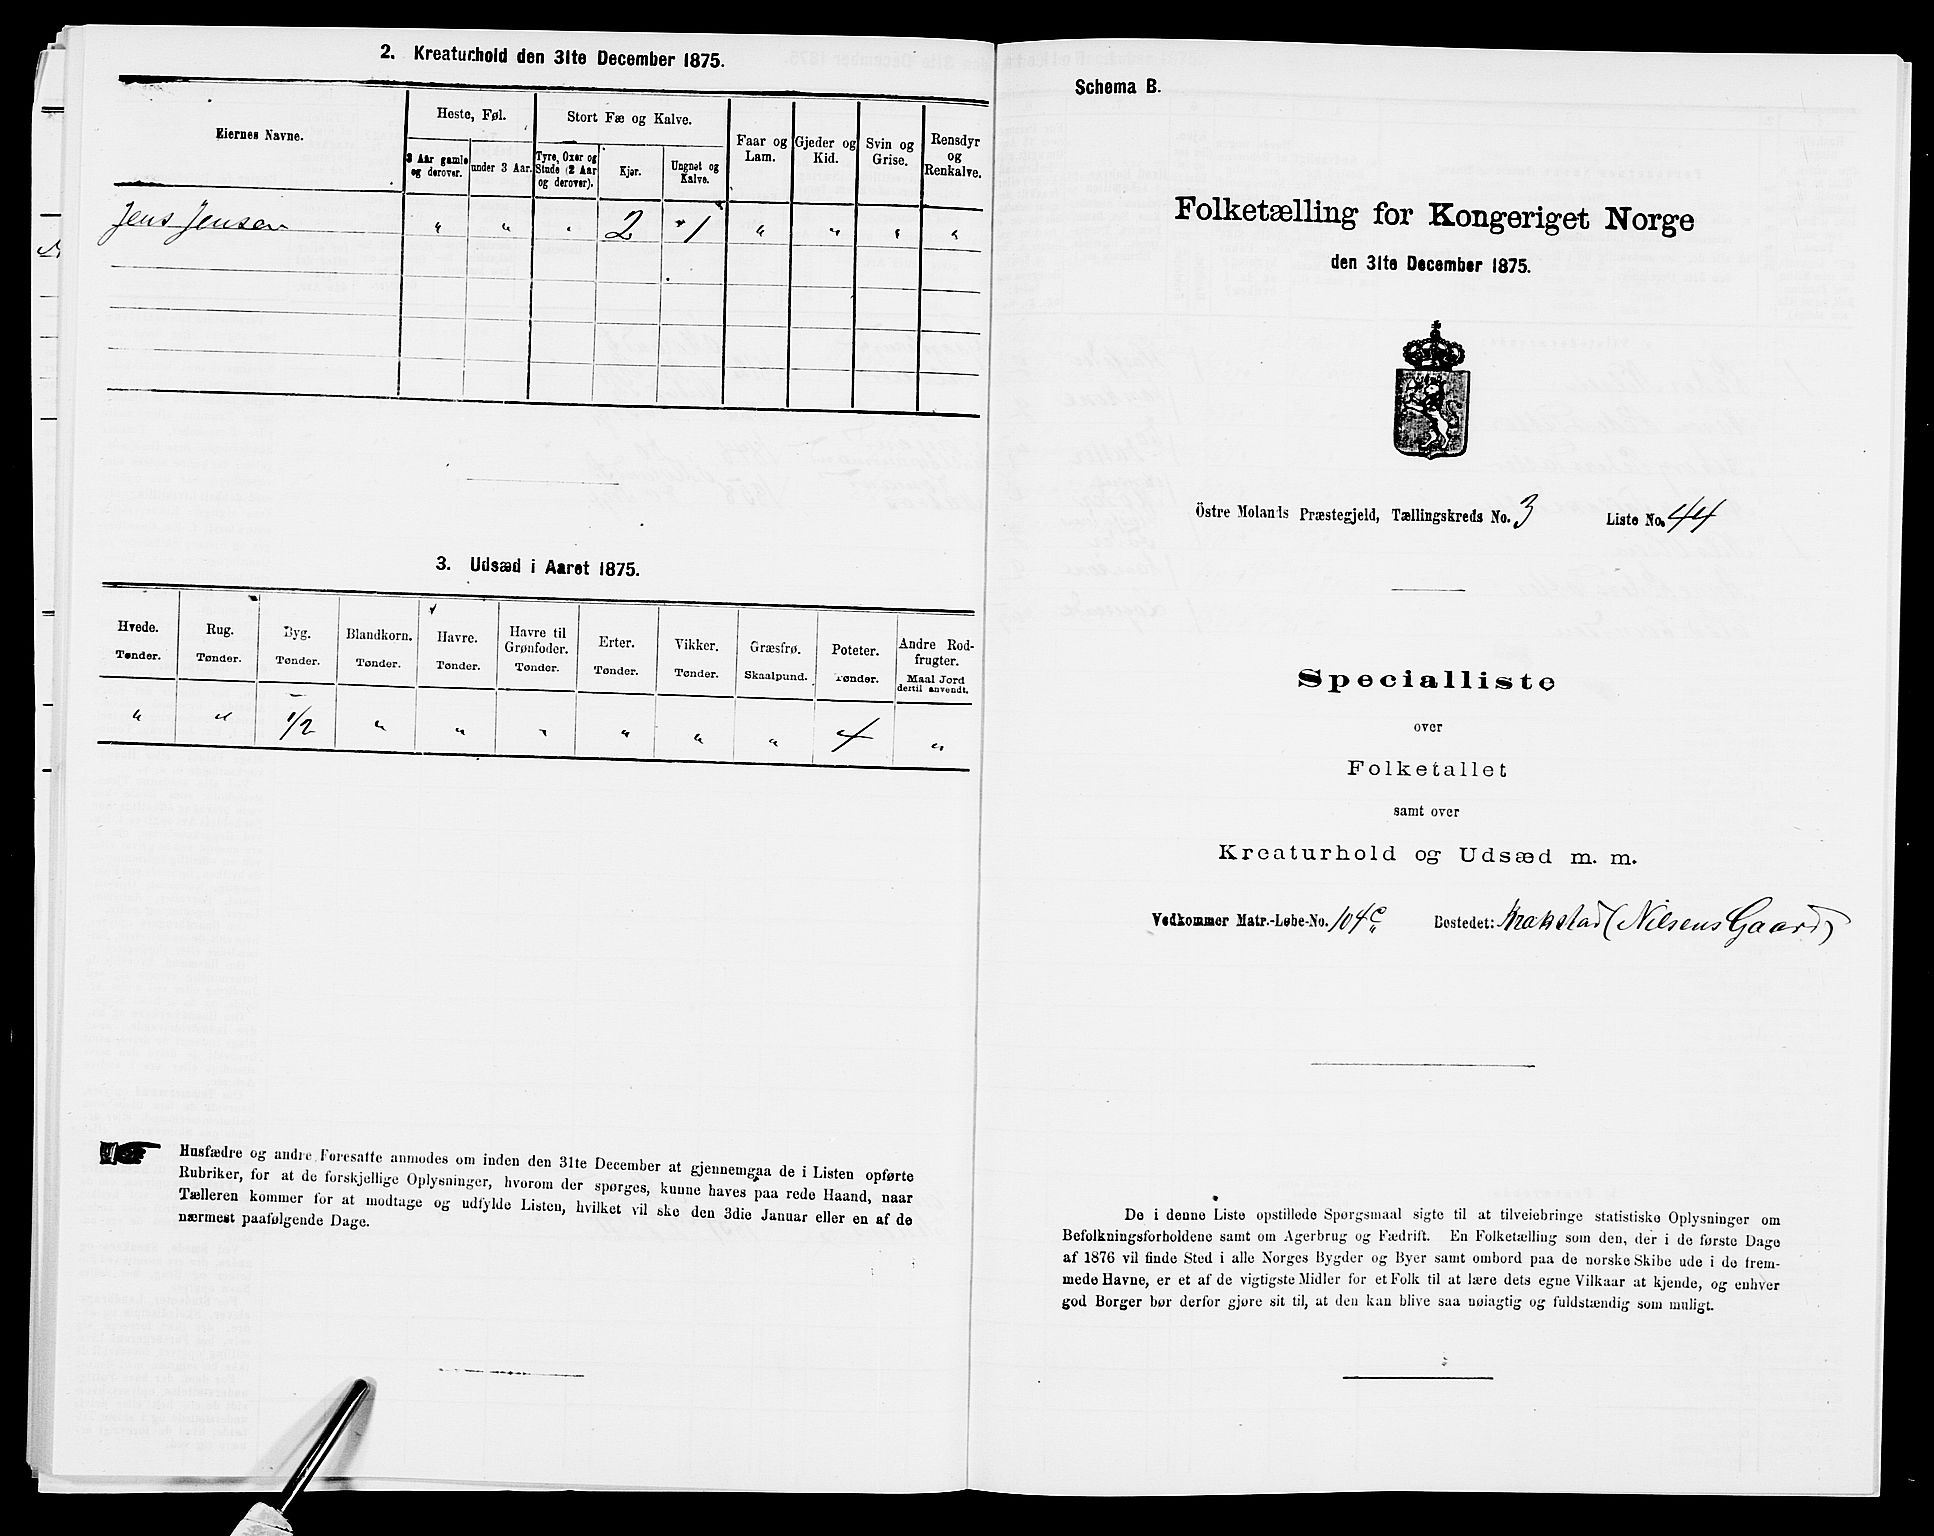 2. Kreaturhold den 31te December 1875.
Eiernes Navne.
Heste, Føl.
Stort Fæ og Kalve.
Faar og
Lam.
Gjeder og
Kid.
Svin og
Grise.
Rensdyr
og
Renkalve.
3 Aar gamle
og derover.
under 3 Aar.
Tyre, Oxer og
Stude (2 Aar
og derover).
Kjør.
Ungnøt og
Kalve.
Jens Jensen " " " 2 " 1 " " " "
3. Udsæd i Aaret 1875.
Hvede.
Tønder.
Rug.
Tønder.
Byg.
Tønder.
Blandkorn.
Tønder.
Havre.
Tønder.
Havre til
Grønfoder.
Tønder.
Erter.
Tønder.
Vikker.
Tønder.
Græsfrø.
Skaalpund.
Poteter.
Tønder.
Andre Rod-
frugter.
Maal Jord
dertil anvendt.
" " 1/2 " " " " " " 4 "
Husfædre og andre Foresatte anmodes om inden den 31te December at gjennemgaa de i Listen opførte
Rubriker, for at de forskjellige Oplysninger, hvorom der spørges, kunne haves paa rede Haand, naar
Tælleren kommer for at modtage og udfylde Listen, hvilket vil ske den 3die Januar eller en af de
nærmest paafølgende Dage.
Schema B.
Folketælling for Kongeriget Norge
den 31te December 1875.
Östre Molands Præstegjeld, Tællingskreds No. 3 Liste No. 44
Specialliste
over
Folketallet
samt over
Kreaturhold og Udsæd m. m.
Vedkommer Matr.-Løbe-No. 104c Bostedet: Krokstad (Nilsens Gaard)
De i denne Liste opstillede Spørgsmaal sigte til at tilveiebringe statistiske Oplysninger om
Befolkningsforholdene samt om Agerbrug og Fædrift. En Folketælling som den, der i de første Dage
af 1876 vil finde Sted i alle Norges Bygder og Byer samt ombord paa de norske Skibe ude i de frem-
mede Havne, er et af de vigtigste Midler for et Folk til at lære dets egne Vilkaar at kjende, og enhver
god Borger bør derfor gjøre sit til, at den kan blive saa nøiagtig og fuldstændig som muligt.